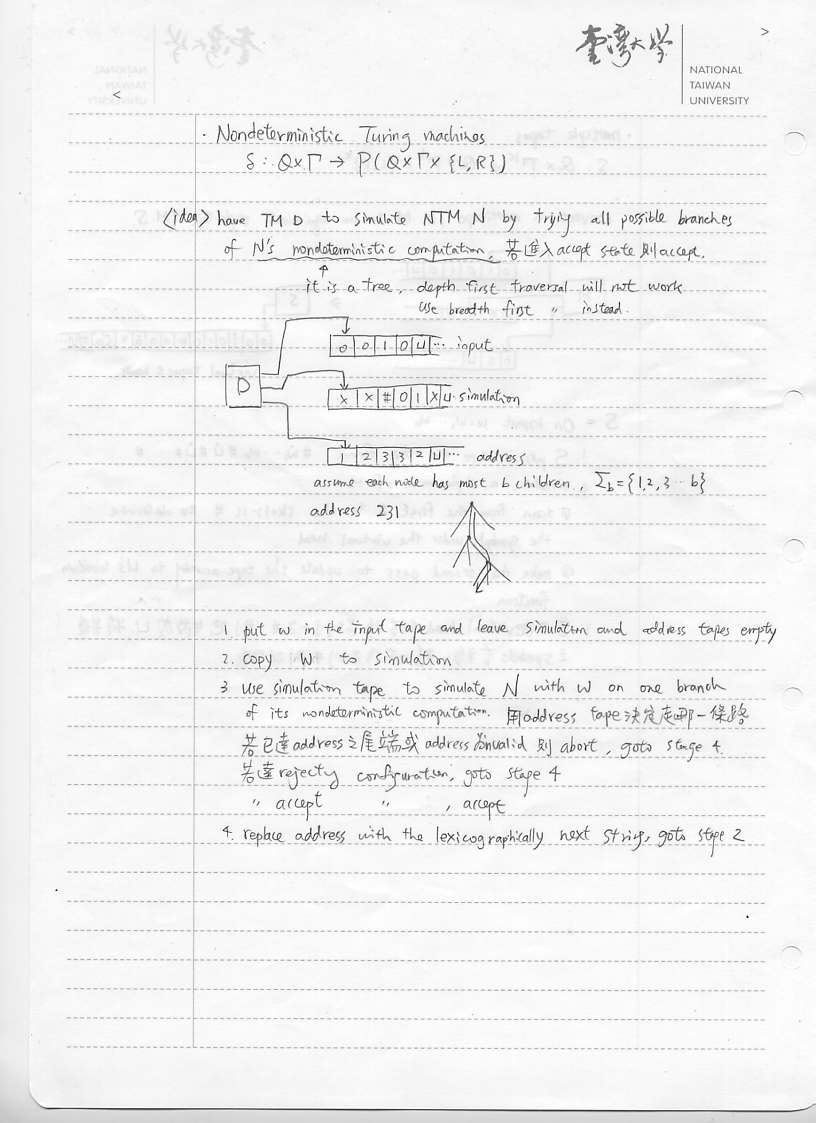 臺灣大學
NATIONAL
TAIWAN
UNIVERSITY
· Nondeterministic Turing machines
δ : Q×Γ → P(Q×Γ×{L,R})
<idea> have TM D to simulate NTM N by trying all possible branches
of N's nondeterministic computation, 若進入accept state 則accept.
↑
it is a tree, depth first traversal will not work
use breadth first 〃 instead.
0 0 1 0 ⊔ ... input
D
x x # 0 1 x ⊔ ·· simulation
1 2 3 3 2 ⊔ ... address
assume each node has most b children, Σb={1,2,3 ··· b}
address 231
1. put w in the input tape and leave simulation and address tapes empty
2. copy w to simulation
3 use simulation tape to simulate N with w on one branch
of its nondeterministic computation. 用address tape決定走哪一條路
若已達address之尾端或address為invalid 則 abort, goto stage 4
若達rejecty configuration, goto stage 4
〃 accept 〃 , accept
4. replace address with the lexicographically next string, goto stage 2